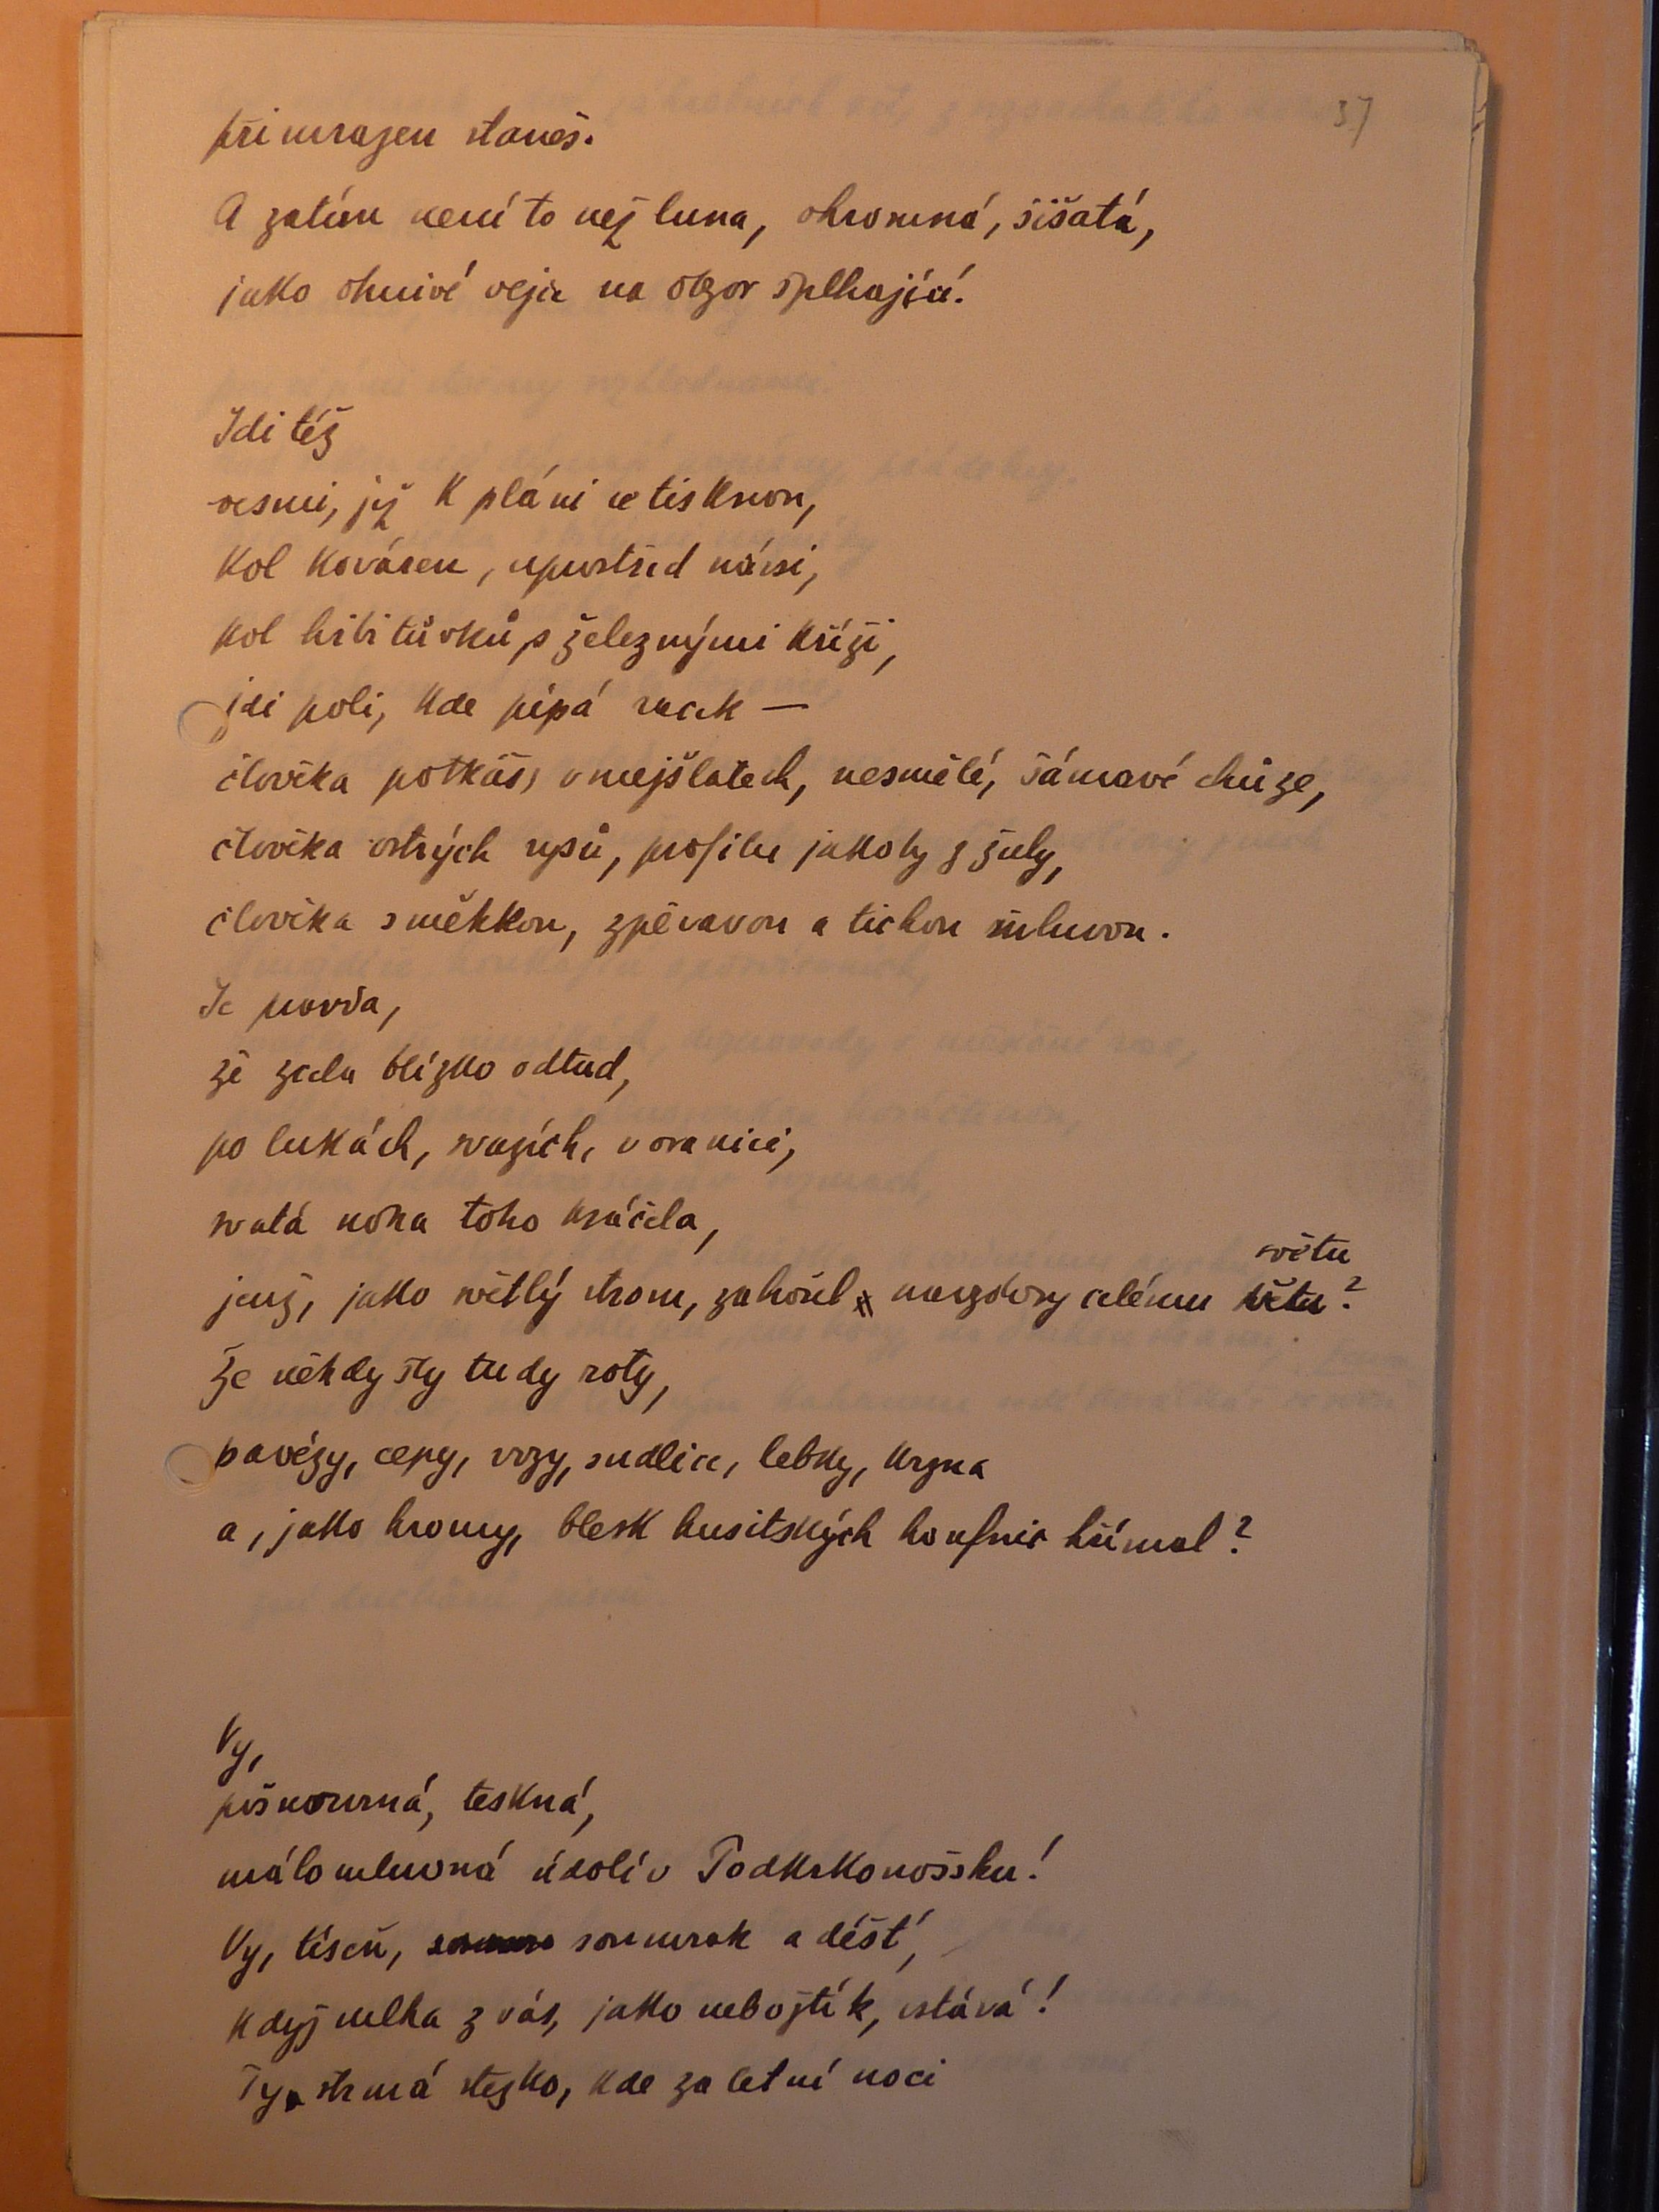 37
přimrazen staneš.
A zatím není to než luna, ohromná, šišatá,
jako ohnivé vejce na obzor šplhající.
Jdi též
vesmi, jež k pláni se tisknou,
kol kováren, uprostřed návsi,
kol hřbitůvků s železnými kříži,
jdi poli, kde pípá racek —
člověka potkáš, v nejšlatech, nesmělé, šámavé chůze,
člověka ostrých rysů, profilu jakoby z žuly,
člověka s měkkou, zpěvavou a tichou mluvou.
Je pravda,
že zcela blízko odtud,
po lukách, svazích, v oranici,
svatá noha toho kráčela,
jenž, jako světlý strom, zahořel navzdory celému světu?
Že někdy šly tudy roty,
pavézy, cepy, vozy, sudlice, lebky, kryna
a, jako hromy, blesk husitských houfnic hřímal?
Vy,
pošmourná, teskná,
málomluvná údolí v Podkrkonošsku!
Vy, tíseň, soumrak a déšť,
když mlha z vás, jako nebožtík, vstává!
Ty strmá stezko, kde za letní noci